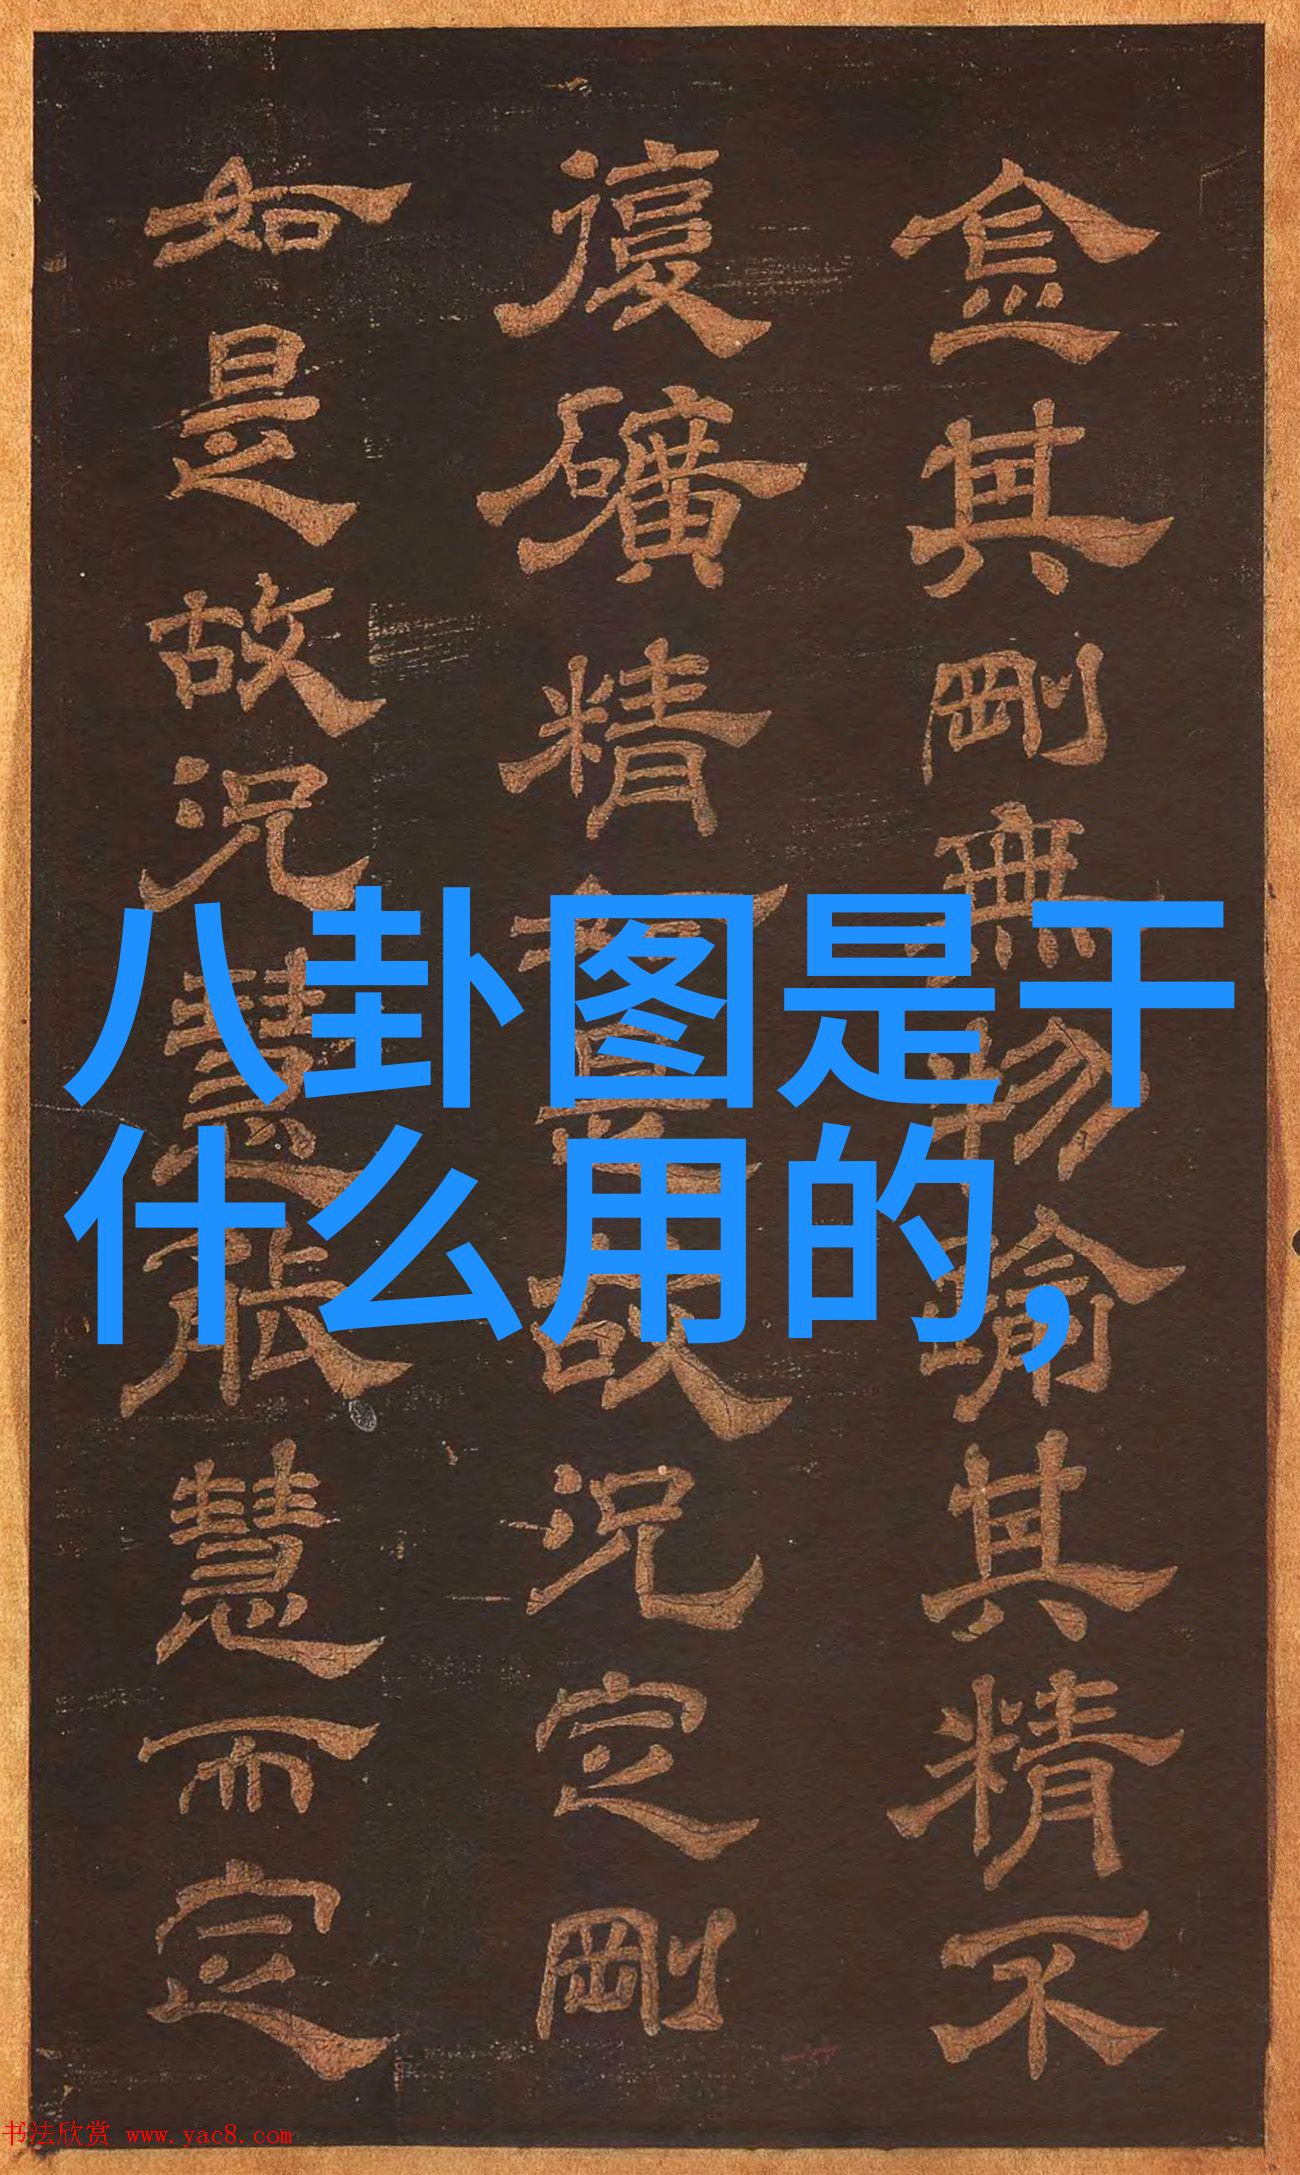 八卦图是干
什么用的,
金其剛無物喻其精不
復礦精如是故況定剛
如是故況慧能慧而定
书法欣赏 www.yac8.com